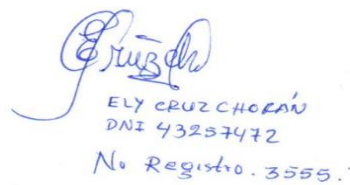 ELY CRUZ CHORÁN
DNI 43257472
No Registro. 3555.